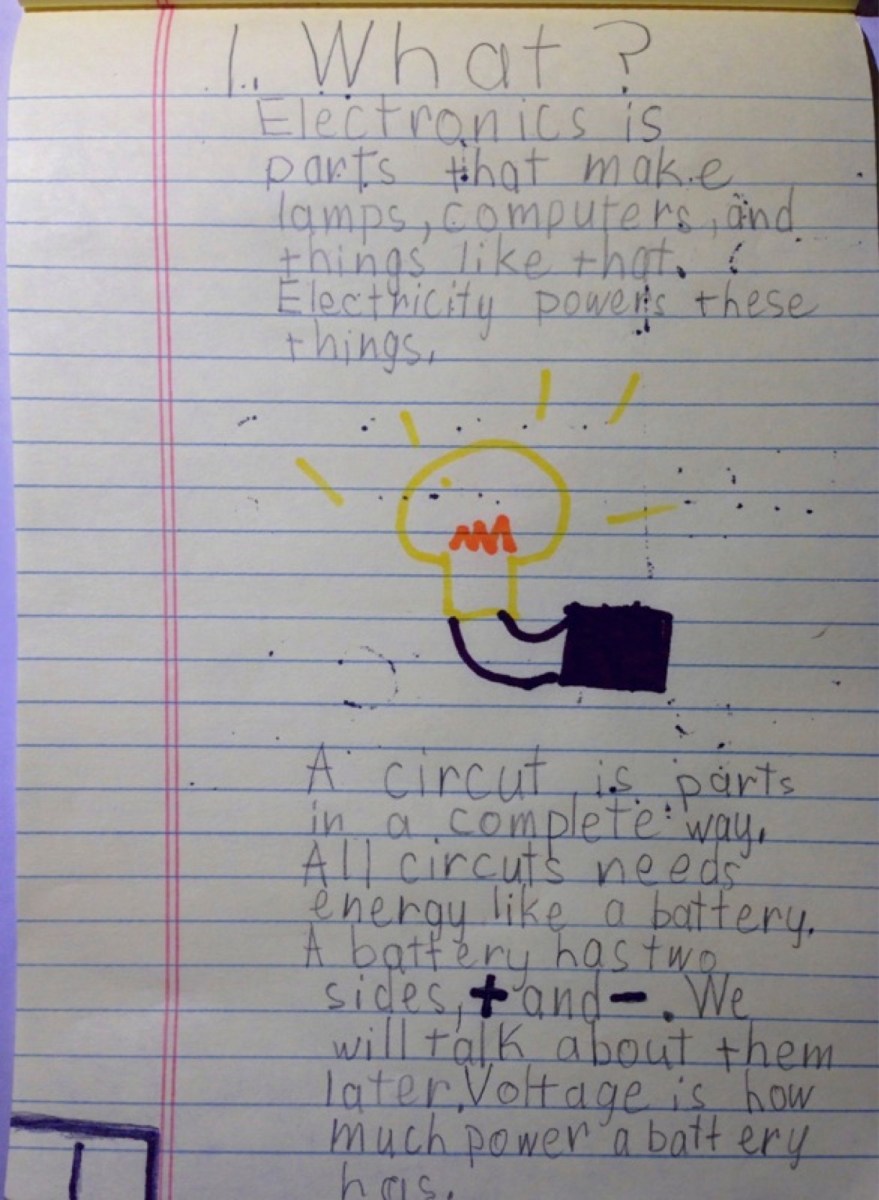 1. What?
Electronics is
parts that make
lamps, computers, and
things like that.
Electricity powers these
things.
A circut is parts
in a complete way.
All circuts needs
energy like a battery.
A battery has two
sides, + and -. We
will talk about them
later. Voltage is how
much power a battery
has.
1